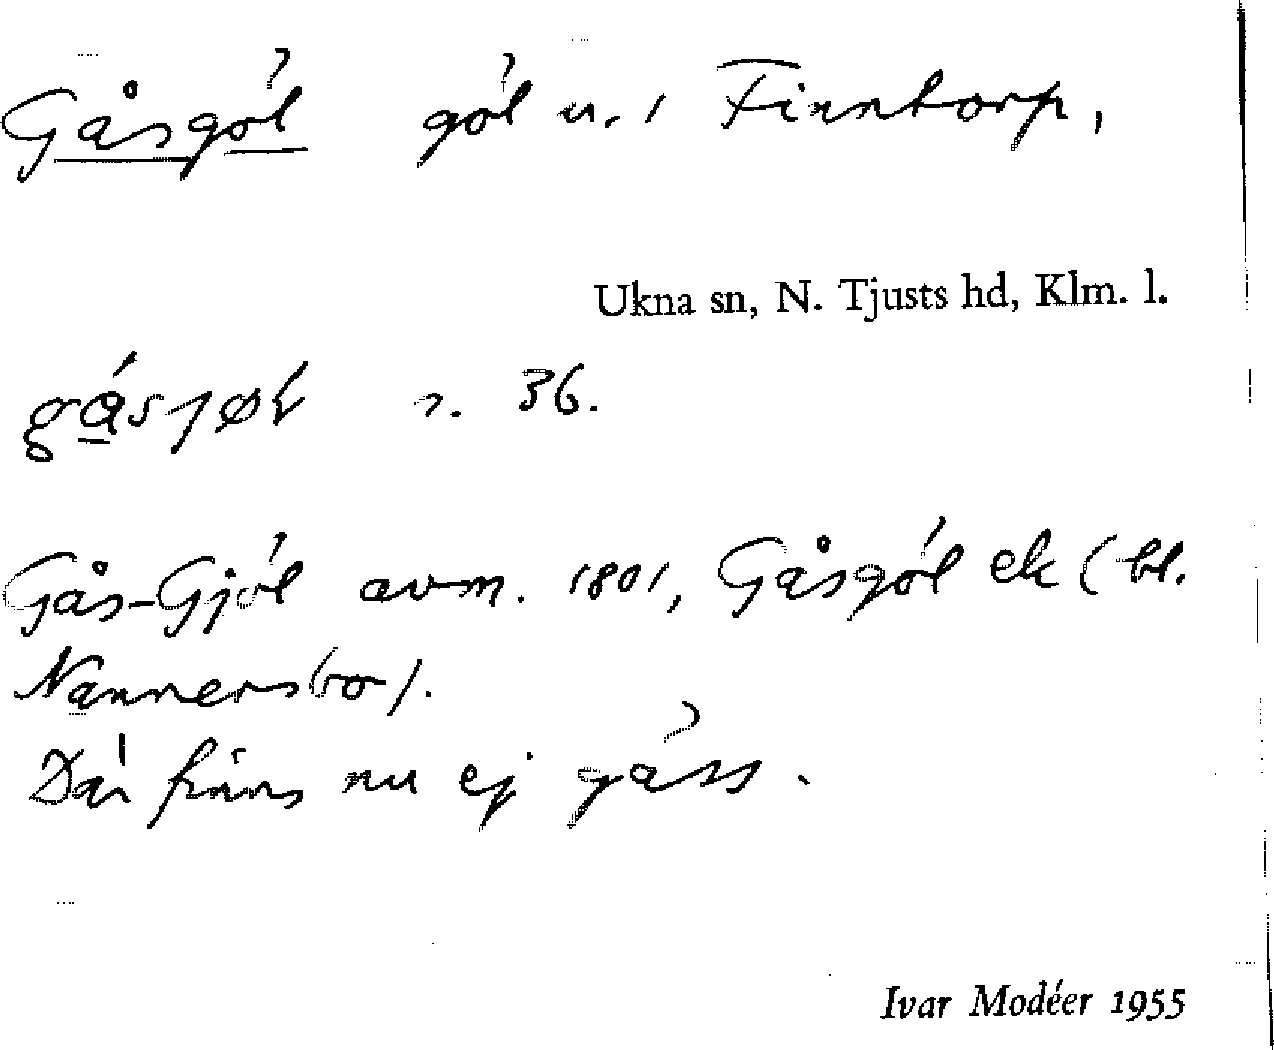 Gåsgöl göl u. 1 Finntorp,
Ukna sn, N. Tjusts hd, Klm. l.
s. 36.
Gås-Gjöl avm. 1801, Gåsgöl ek (bl.
Nannersbo).
Där finns nu ej gäss.
Ivar Modéer 1955